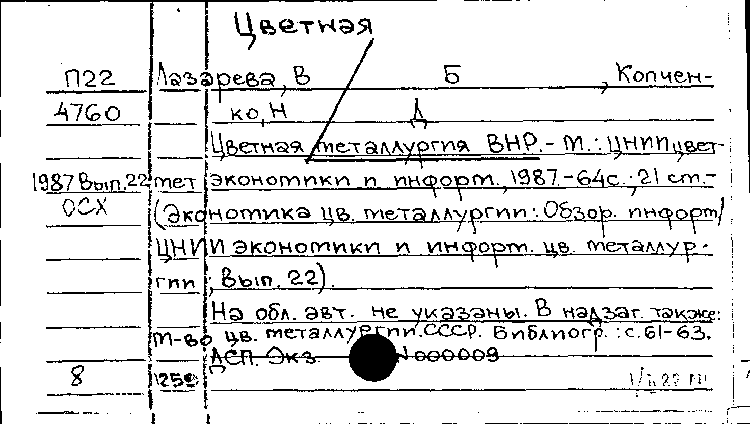 Цветная
П22 Лазарева, В Б , Копчен-
4760 ко, Н Д
Цветная металлургия ВНР. - М.: ЦНИИцвет-
1987 Вып.22 мет экономики и информ., 1987.-64с.; 21 см.-
ОСХ (Экономика цв. металлургии: Обзор. информ/
ЦНИИ экономики и информ. цв. металлур-
гии; Вып. 22).
На обл. авт. не указаны. В надзаг. также:
М-во цв. металлургии СССР. Библиогр.: с.61-63.
ДСП. Экз. N000009
8 125